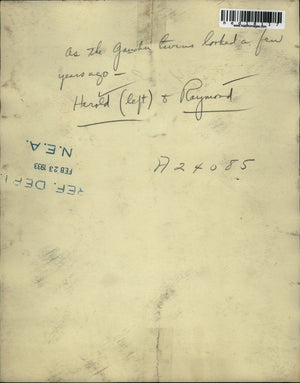 As the Gaucho twins looked a few
years ago —
Harold (left) & Raymond
A24085
N.E.A.
FEB 23 1933
REF. DEP